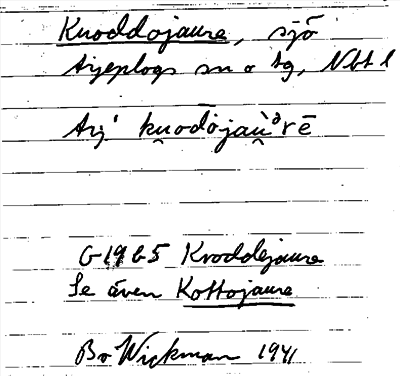 Kuoddojaure, sjö
Arjeplogs sn o tg, Nbt l
Arj' ku̯oďōjau̯ᵒrē
G 19 G5 Kroddejaure
Se även Kottojaure
Bo Wickman 1941